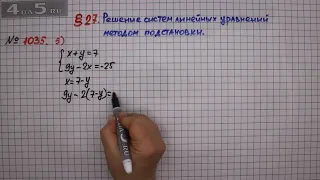 4GA5.RU
§27. Решение систем линейных уравнений
методом подстановки.
№ 1035. 3)
{ x+y=7
9y-2x=-25
x=7-y
9y-2(7-y)=